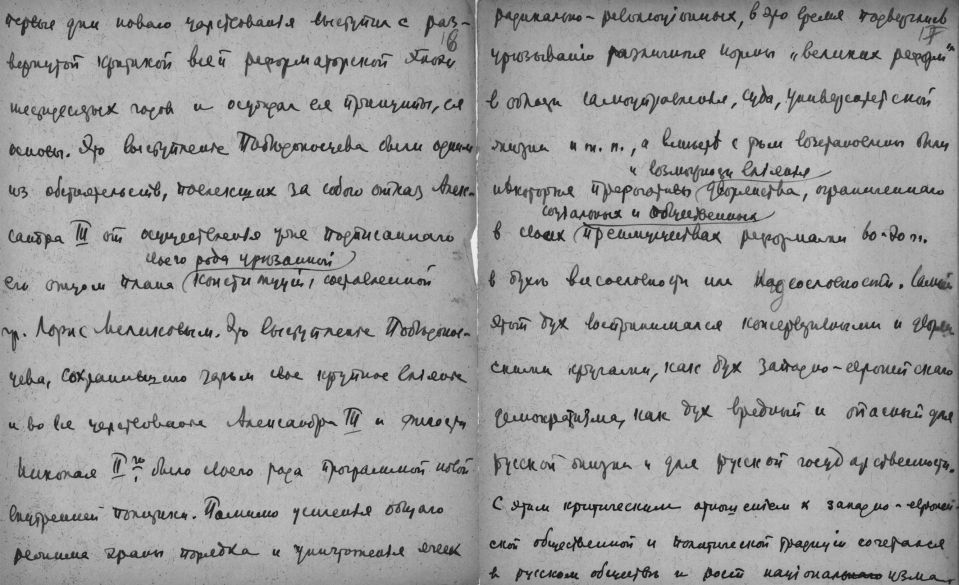 первые дни новаго царствованія выступил с раз-
6
вернутой критикой всей реформаторской эпохи
шестидесятых годов и осуждал ея принципы, ея
основы. Это выступленіе Побѣдоносцева было одним
из обстоятельств, повлекших за собою отказ Алек-
сандра III от осуществленія уже подписаннаго
своего рода урѣзанной
его отцом плана конституціи, составленной
гр. Лорис Меликовым. Это выступленіе Побѣдонос-
цева, сохранившаго затѣм свое крупное вліяніе
и во все царствованіе Александра III и
Николая II го было своего рода программой новой
внутренней политики. Помимо усиленія общаго
режима охраны порядка и уничтоженія ячеек
радикально-революціонных, в это время подверглись
7
урѣзыванію различныя нормы „великих реформ"
в области самоуправленія, суда, университетской
жизни и т. п., а вмѣстѣ с тѣм возстановлены были
и возможности вліянія
нѣкоторыя прерогативы дворянства, ограниченнаго
социальных и общественных
в своих преимуществах реформами 60-70 гг.
в духѣ внесословности или надсословности. Самый
этот дух воспринимался консервативными и дворян
скими кругами, как дух западно-европейскаго
демократизма, как дух вредный и опасный для
русской жизни и для русской государственности.
С этим критическим отношеніем к западно-европей-
ской общественной и политической традиціи сочетался
в русском обществѣ и рост націонализма,